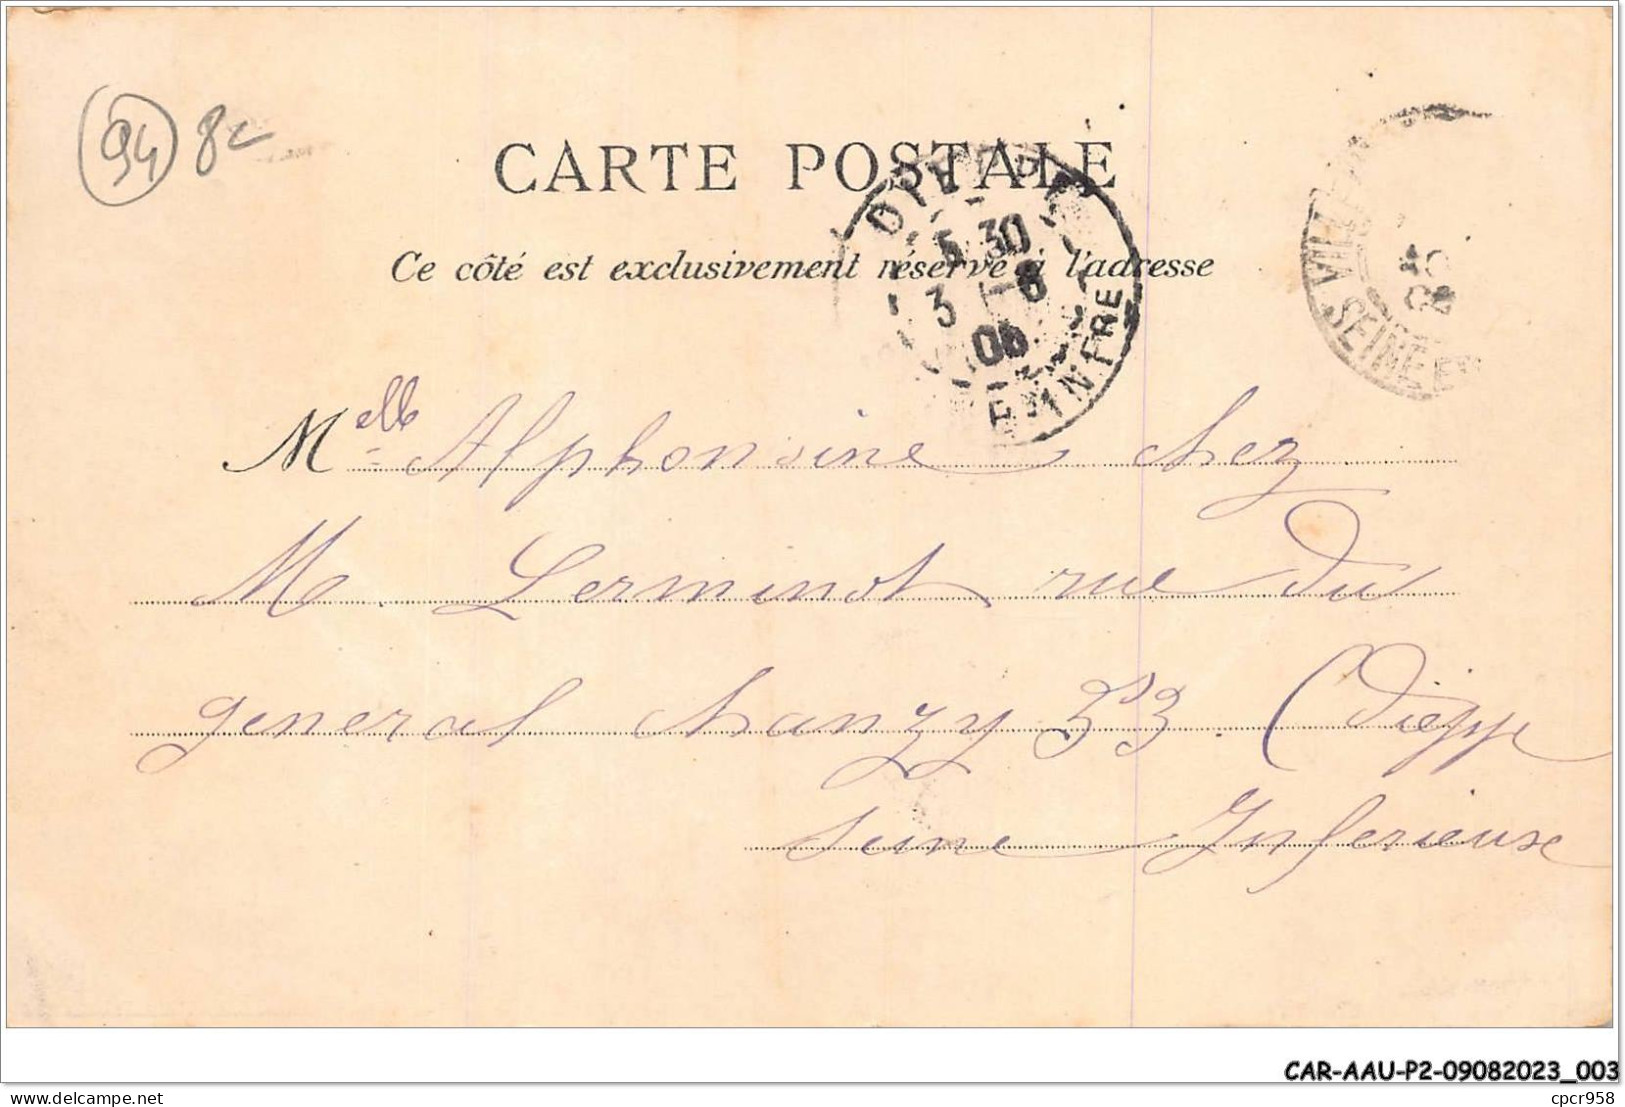 94 8c
CARTE POSTALE
Ce côté est exclusivement réservé à l'adresse
DIEPPE
5 30
3 - 8
06
SEINE INFRE
SEINE ET
Melle Alphonsine chez
Mr Lerminot rue du
general chanzy 33. Diepp
Seine Inferieuse
CAR-AAU-P2-09082023_003
cpcr958